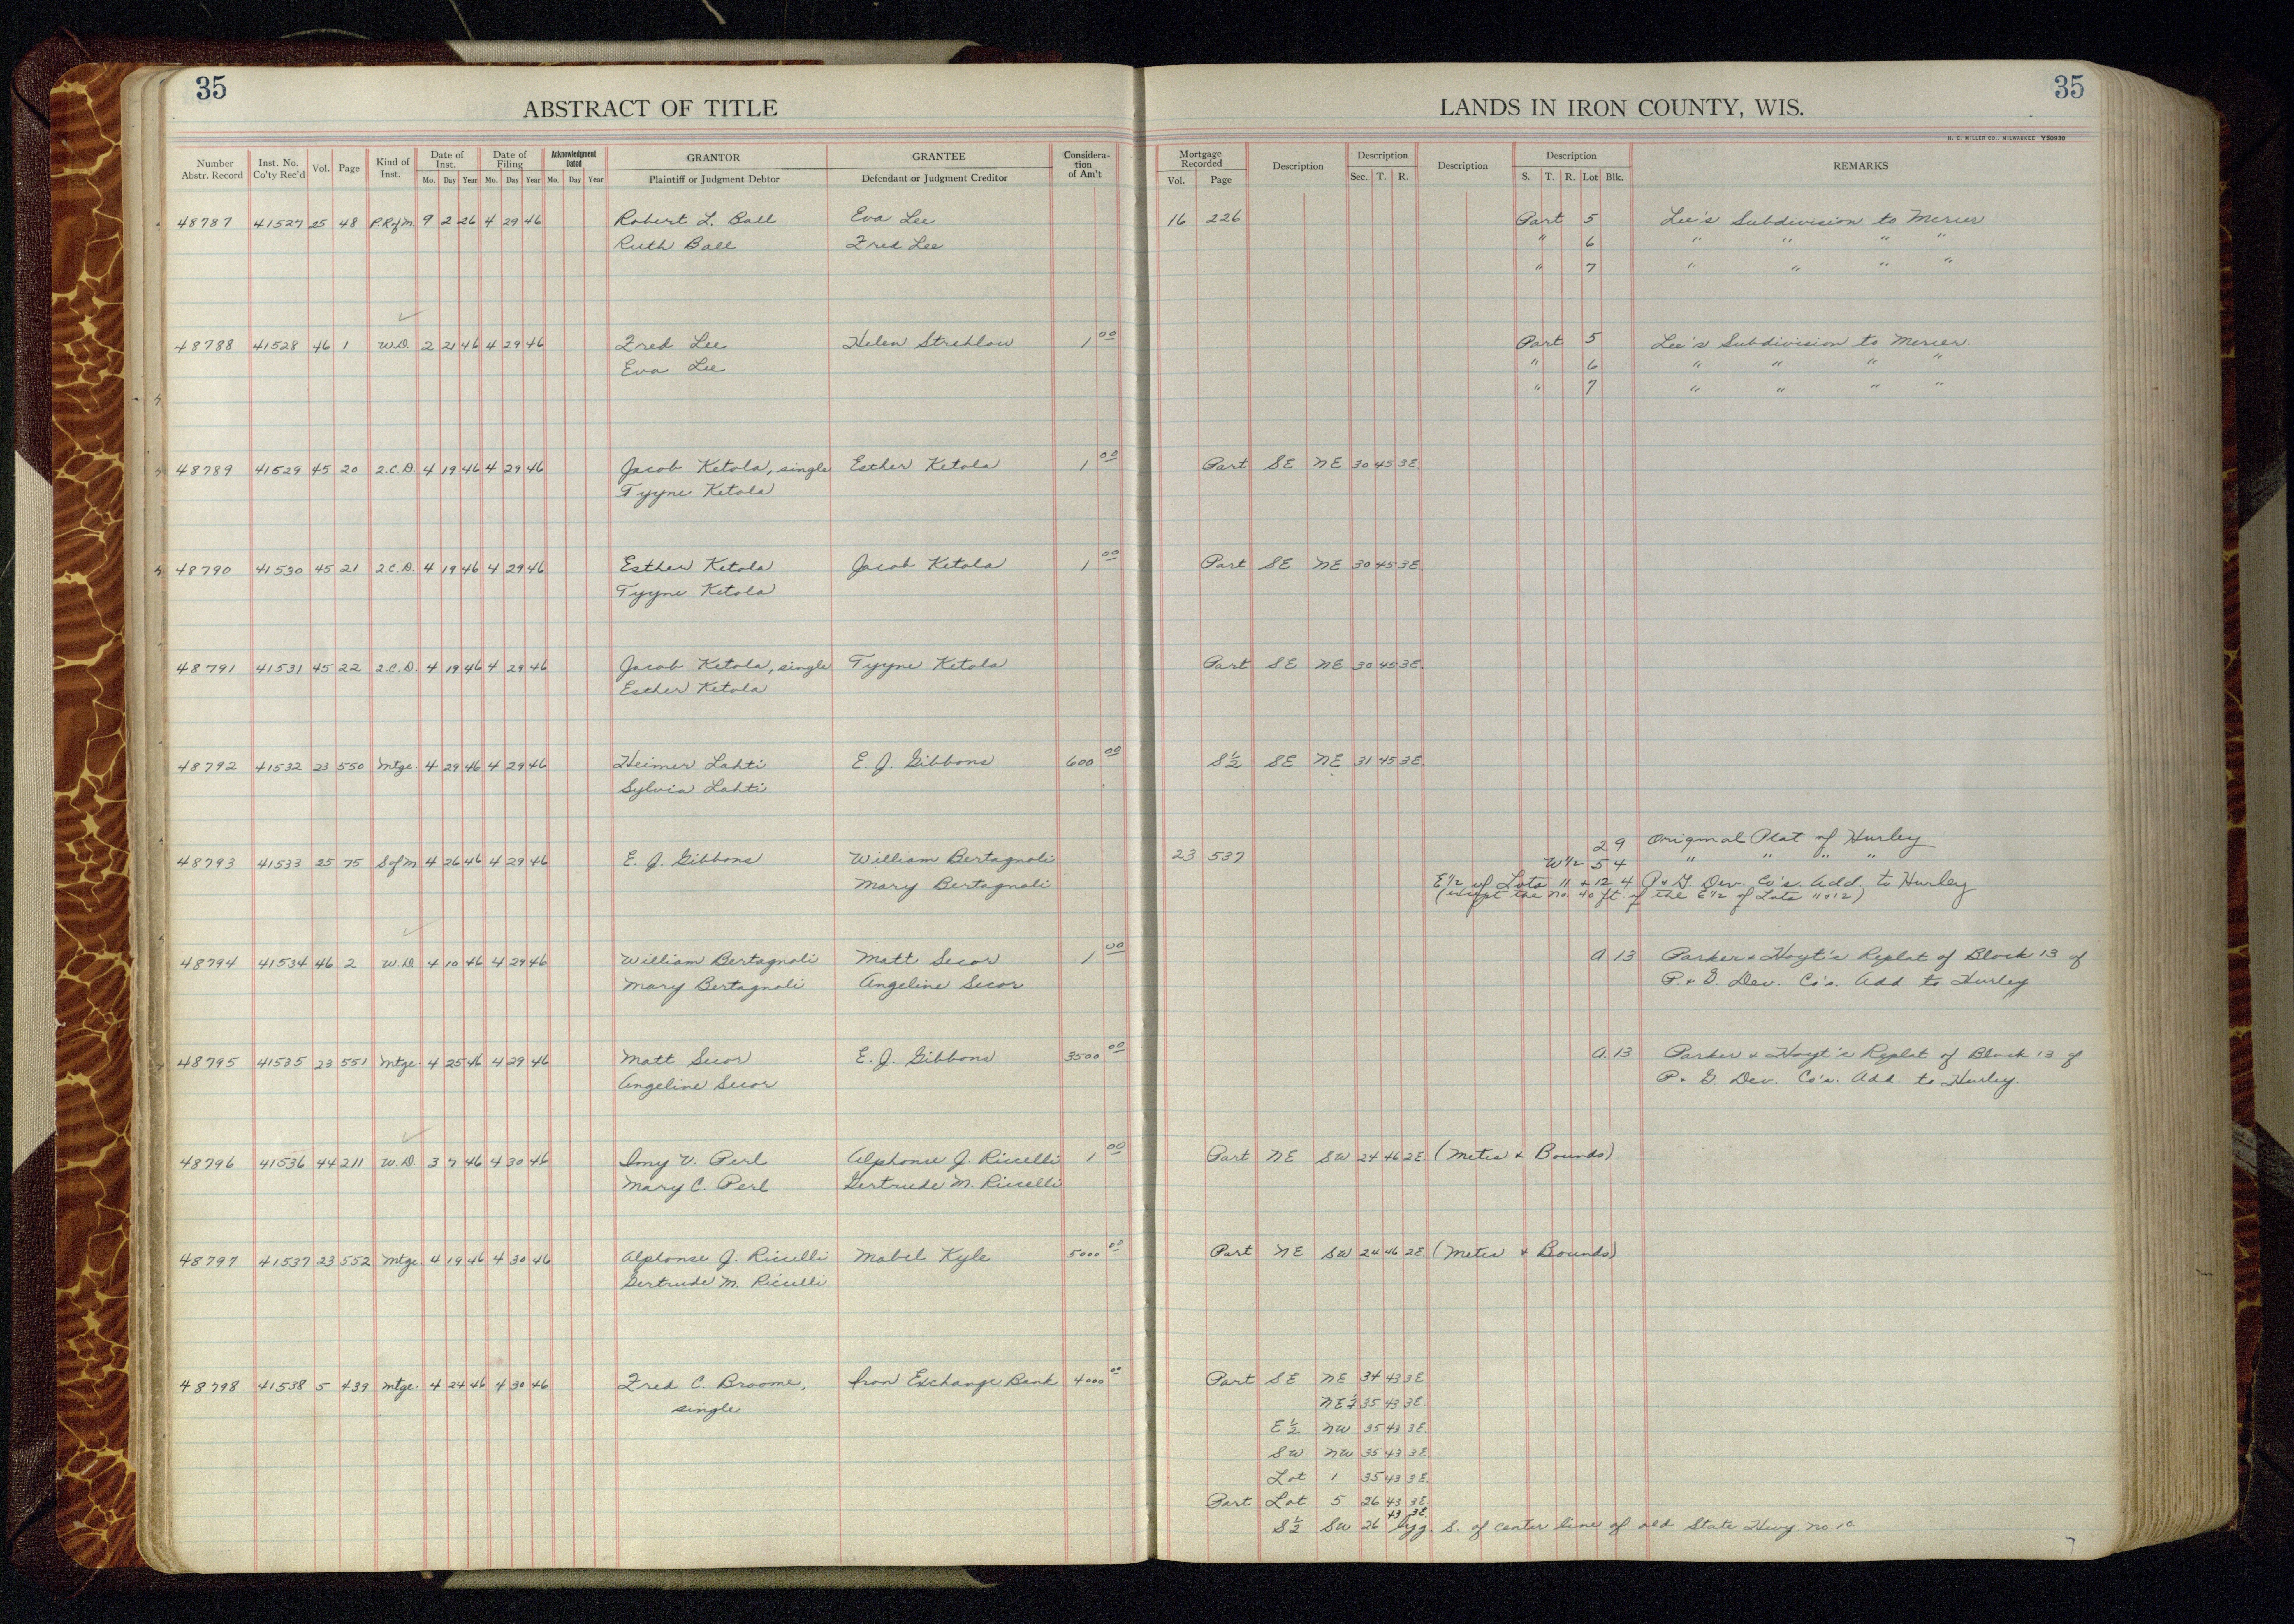 35
35
ABSTRACT OF TITLE
LANDS IN IRON COUNTY, WIS.
H. C. MILLER CO., MILWAUKEE Y50930
Number Abstr. Record Inst. No. Co'ty Rec'd Vol. Page Kind of Inst. Date of Inst. Mo. Day Year Date of Filing Mo. Day Year Acknowledgment Dated Mo. Day Year GRANTOR Plaintiff or Judgment Debtor GRANTEE Defendant or Judgment Creditor Considera-tion of Am't Mortgage Recorded Vol. Page Description Description Sec. T. R. Description Description S. T. R. Lot Blk. REMARKS
48787 41527 25 48 P.RofM. 9 2 26 4 29 46 Robert L. Ball Eva Lee 16 226 Part 5 Lee's Subdivision to Mercer
Ruth Ball Fred Lee " 6 " " " "
" 7 " " " "
48788 41528 46 1 W.D. 2 21 46 4 29 46 Fred Lee Helen Strehlow 1 00 Part 5 Lee's Subdivision to Mercer.
Eva Lee " 6 " " " "
" 7 " " " "
48789 41529 45 20 2.C.D. 4 19 46 4 29 46 Jacob Ketola, single Esther Ketola 1 00 Part SE NE 30 45 3E.
Tyyne Ketola
48790 41530 45 21 2.C.D. 4 19 46 4 29 46 Esther Ketola Jacob Ketola 1 00 Part SE NE 30 45 3E.
Tyyne Ketola
48791 41531 45 22 2.C.D. 4 19 46 4 29 46 Jacob Ketola, single Tyyne Ketola Part SE NE 30 45 3E.
Esther Ketola
48792 41532 23 550 Mtge. 4 29 46 4 29 46 Heimer Lahti E. J. Gibbons 600 00 S½ SE NE 31 45 3E.
Sylvia Lahti
2 9 Original Plat of Hurley
48793 41533 25 75 S of M 4 26 46 4 29 46 E. J. Gibbons William Bertagnoli 23 537 W½ 5 4 " " " "
Mary Bertagnoli E½ of Lots 11 + 12 4 P + G. Dev. Co's. Add. to Hurley
(except the No. 40 ft. of the E½ of Lots 11 + 12)
48794 41534 46 2 W.D. 4 10 46 4 29 46 William Bertagnoli Matt Secor 1 00 A 13 Parker + Hoyt's Replat of Block 13 of
Mary Bertagnoli Angeline Secor P. + G. Dev. Co's. Add to Hurley
48795 41535 23 551 Mtge. 4 25 46 4 29 46 Matt Secor E. J. Gibbons 3500 00 A. 13 Parker + Hoyt's Replat of Block 13 of
Angeline Secor P. G. Dev. Co's. Add. to Hurley.
48796 41536 44 211 W.D. 3 7 46 4 30 46 V. Perl Alphonse J. Ricelli 1 00 Part NE SW 24 46 2E. (Metes + Bounds)
Mary C. Perl Gertrude M. Ricelli
48797 41537 23 552 Mtge. 4 19 46 4 30 46 Alphonse J. Ricelli Mabel Kyle 5000 00 Part NE SW 24 46 2E. (Metes + Bounds)
Gertrude M. Ricelli
48798 41538 5 439 Mtge. 4 24 46 4 30 46 Fred C. Broome, Iron Exchange Bank 4000 00 Part SE NE 34 43 3E
single NE¼ 35 43 3E.
E½ NW 35 43 3E.
SW NW 35 43 3E.
Lot 1 35 43 3E.
Part Lot 5 26 43 3E.
43 3E.
S½ SW 26 lyg. S. of center line of old State Hwy. No. 10